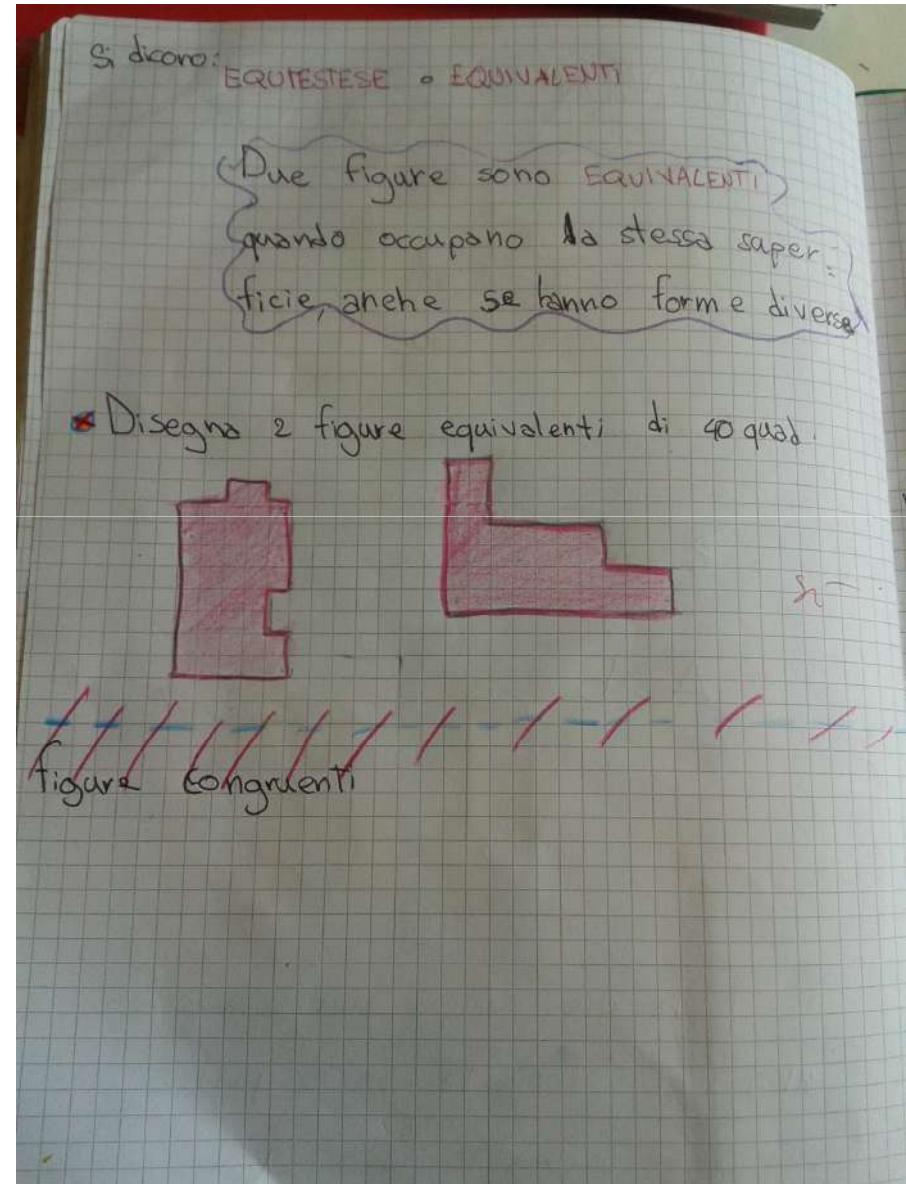 Si dicono:
EQUIESTESE o EQUIVALENTI
Due figure sono EQUIVALENTI
quando occupano la stessa super=
ficie, anche se hanno forme diverse
Disegno 2 figure equivalenti di 40 quad.
figure congruenti